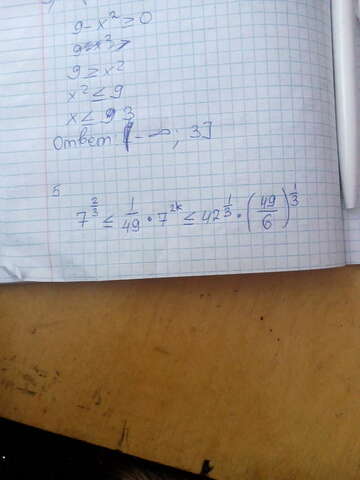 9 - x² ≥ 0
9 ≥ x²
x² ≤ 9
x ≤ 3
Ответ (-∞; 3]
5
7^(2/3) ≤ 1/49 · 7^(2x) ≤ 42^(1/3) · (49/6)^(1/3)